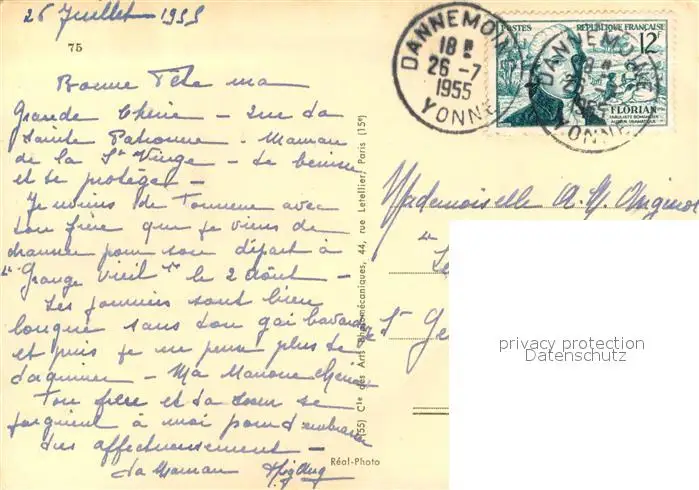 26 Juillet 1955
75
Bonne Fête ma
Grande Chérie - que ta
Sainte Patronne - Maman
de la Ste Vierge - te bénisse
et te protège -
Je viens de Tonnerre avec
ton frère que je viens de
pour son départ à
la Grange le 2 Août -
Les journées sont bien
longues sans ton gai bavardage
et puis je ne peux plus te
taquiner - Ma chérie
Ton frère et ta soeur se
joignent à moi pour t'embrasser
très affectueusement -
ta Maman
Réal-Photo
(55) Cie des Arts Photomécaniques, 44, rue Letellier, Paris (15e)
DANNEMOINE
18 H
26 -7
1955
YONNE
POSTES RÉPUBLIQUE FRANÇAISE
12F
FLORIAN
FABULISTE ROMANCIER
AUTEUR DRAMATIQUE
DANNEMOINE
18 H
26 -7
1955
YONNE
Mademoiselle A. M.
privacy protection
Datenschutz